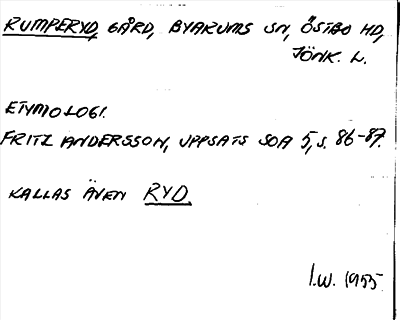 RUMPERYD, GÅRD, BYARUMS SN, ÖSTBO HD,
JÖNK. L.
ETYMOLOGI.
FRITZ ANDERSSON, UPPSATS SOA 5, S. 86-87.
KALLAS ÄVEN RYD.
I.W. 1955